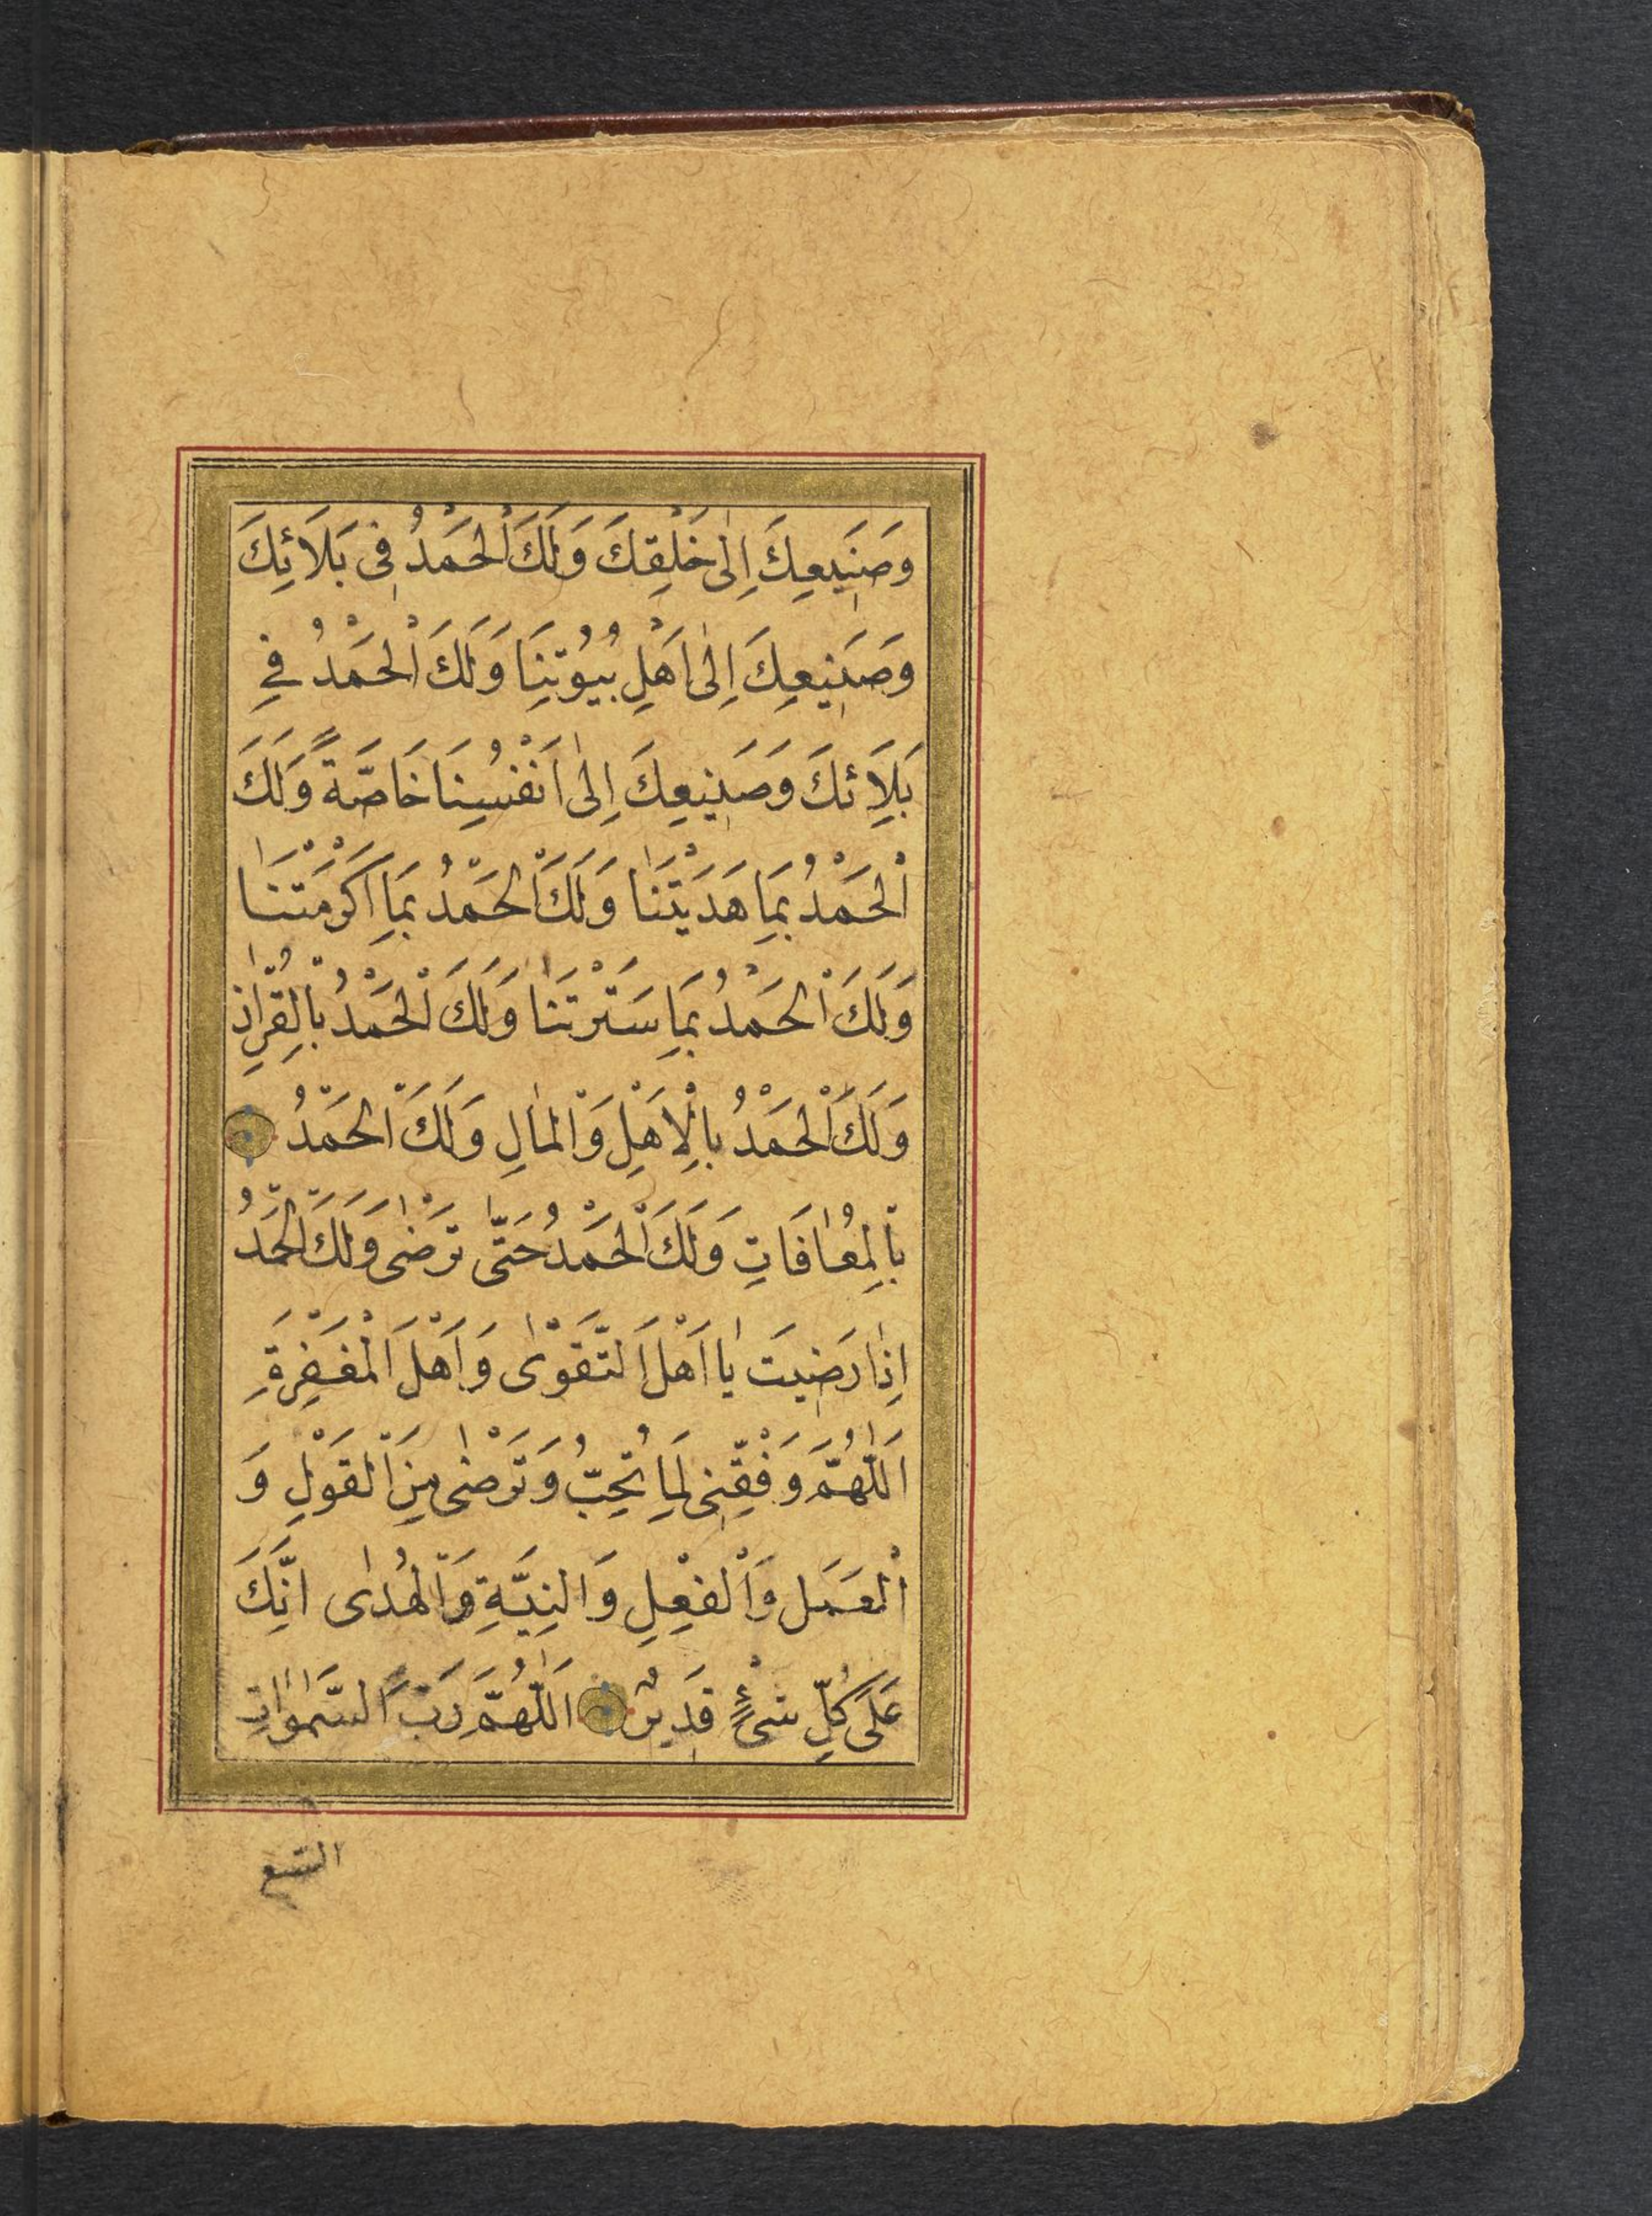 وَصَنِيعِكَ اِلٰى خَلْقِكَ وَلَكَ الْحَمْدُ فِى بَلَائِكَ
وَصَنِيعِكَ اِلٰى اَهْلِ بُيُوتِنَا وَلَكَ الْحَمْدُ فِى
بَلَائِكَ وَصَنِيعِكَ اِلٰى اَنْفُسِنَا خَاصَّةً وَلَكَ
الْحَمْدُ بِمَا هَدَيْتَنَا وَلَكَ الْحَمْدُ بِمَا اَكْرَمْتَنَا
وَلَكَ الْحَمْدُ بِمَا سَتَرْتَنَا وَلَكَ الْحَمْدُ بِالْقُرْاٰنِ
وَلَكَ الْحَمْدُ بِالْاَهْلِ وَالْمَالِ وَلَكَ الْحَمْدُ
بِالْمُعَافَاتِ وَلَكَ الْحَمْدُ حَتّٰى تَرْضٰى وَلَكَ الْحَمْدُ
اِذَا رَضِيتَ يَا اَهْلَ التَّقْوٰى وَاَهْلَ الْمَغْفِرَةِ
اَللّٰهُمَّ وَفِّقْنِى لِمَا تُحِبُّ وَتَرْضٰى مِنَ الْقَوْلِ وَ
الْعَمَلِ وَالْفِعْلِ وَالنِيَّةِ وَالْهُدٰى اِنَّكَ
عَلَى كُلِّ شَىْءٍ قَدِيرٌ اَللّٰهُمَّ رَبَّ السَّمٰوَاتِ
السبع